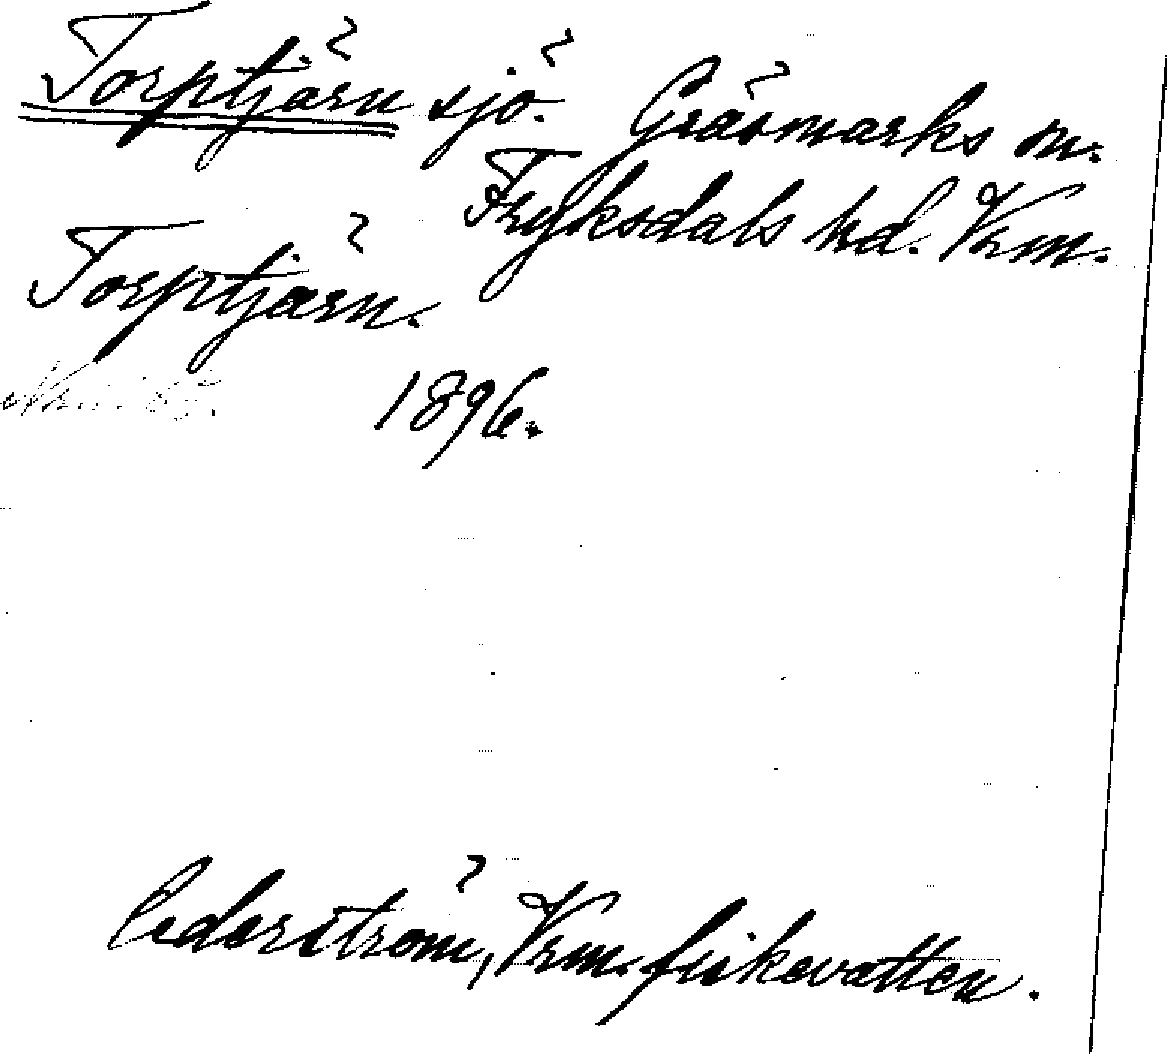 Torptjärn sjö. Gräsmarks sn.
Fryksdals hd. Vrm.
Torptjärn.
1896.
Cederström, Vrm. fiskevatten.